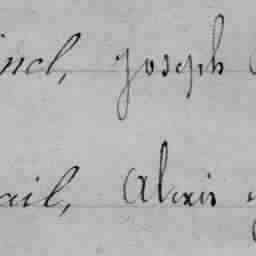 incl, Joseph
ail, Alexis